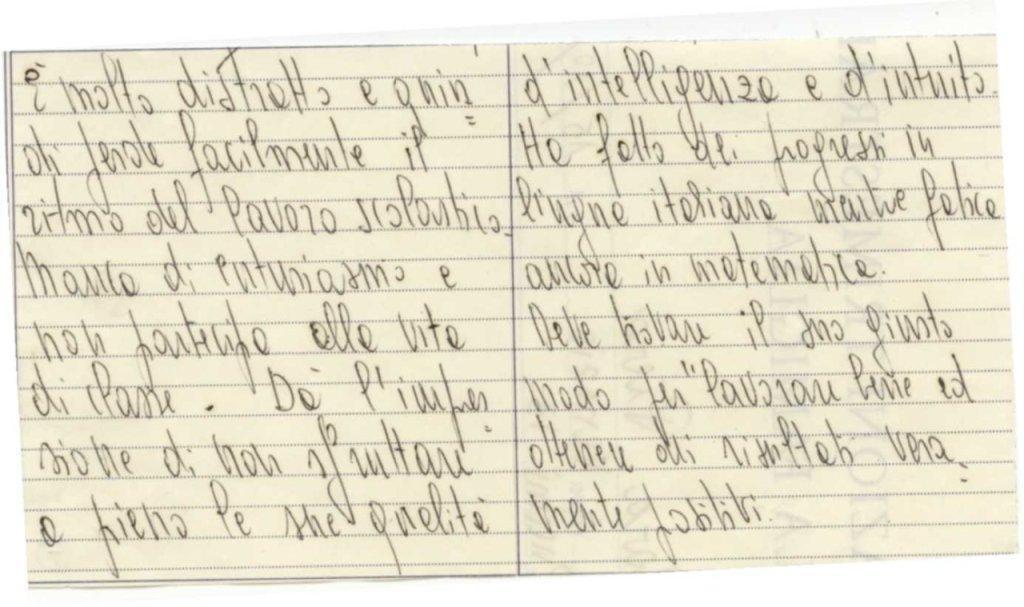 È molto distratto e quin=
di perde facilmente il
ritmo del lavoro scolastico.
Manca di entusiasmo e
non partecipa alla vita
di classe. Dà l'impres=
sione di non sfruttare
a pieno le sue qualità
d'intelligenza e d'intuito.
Ha fatto dei progressi in
lingua italiana mentre fatica
ancora in matematica.
Deve trovare il suo giusto
modo per lavorare bene ed
ottenere dei risultati vera=
mente positivi.